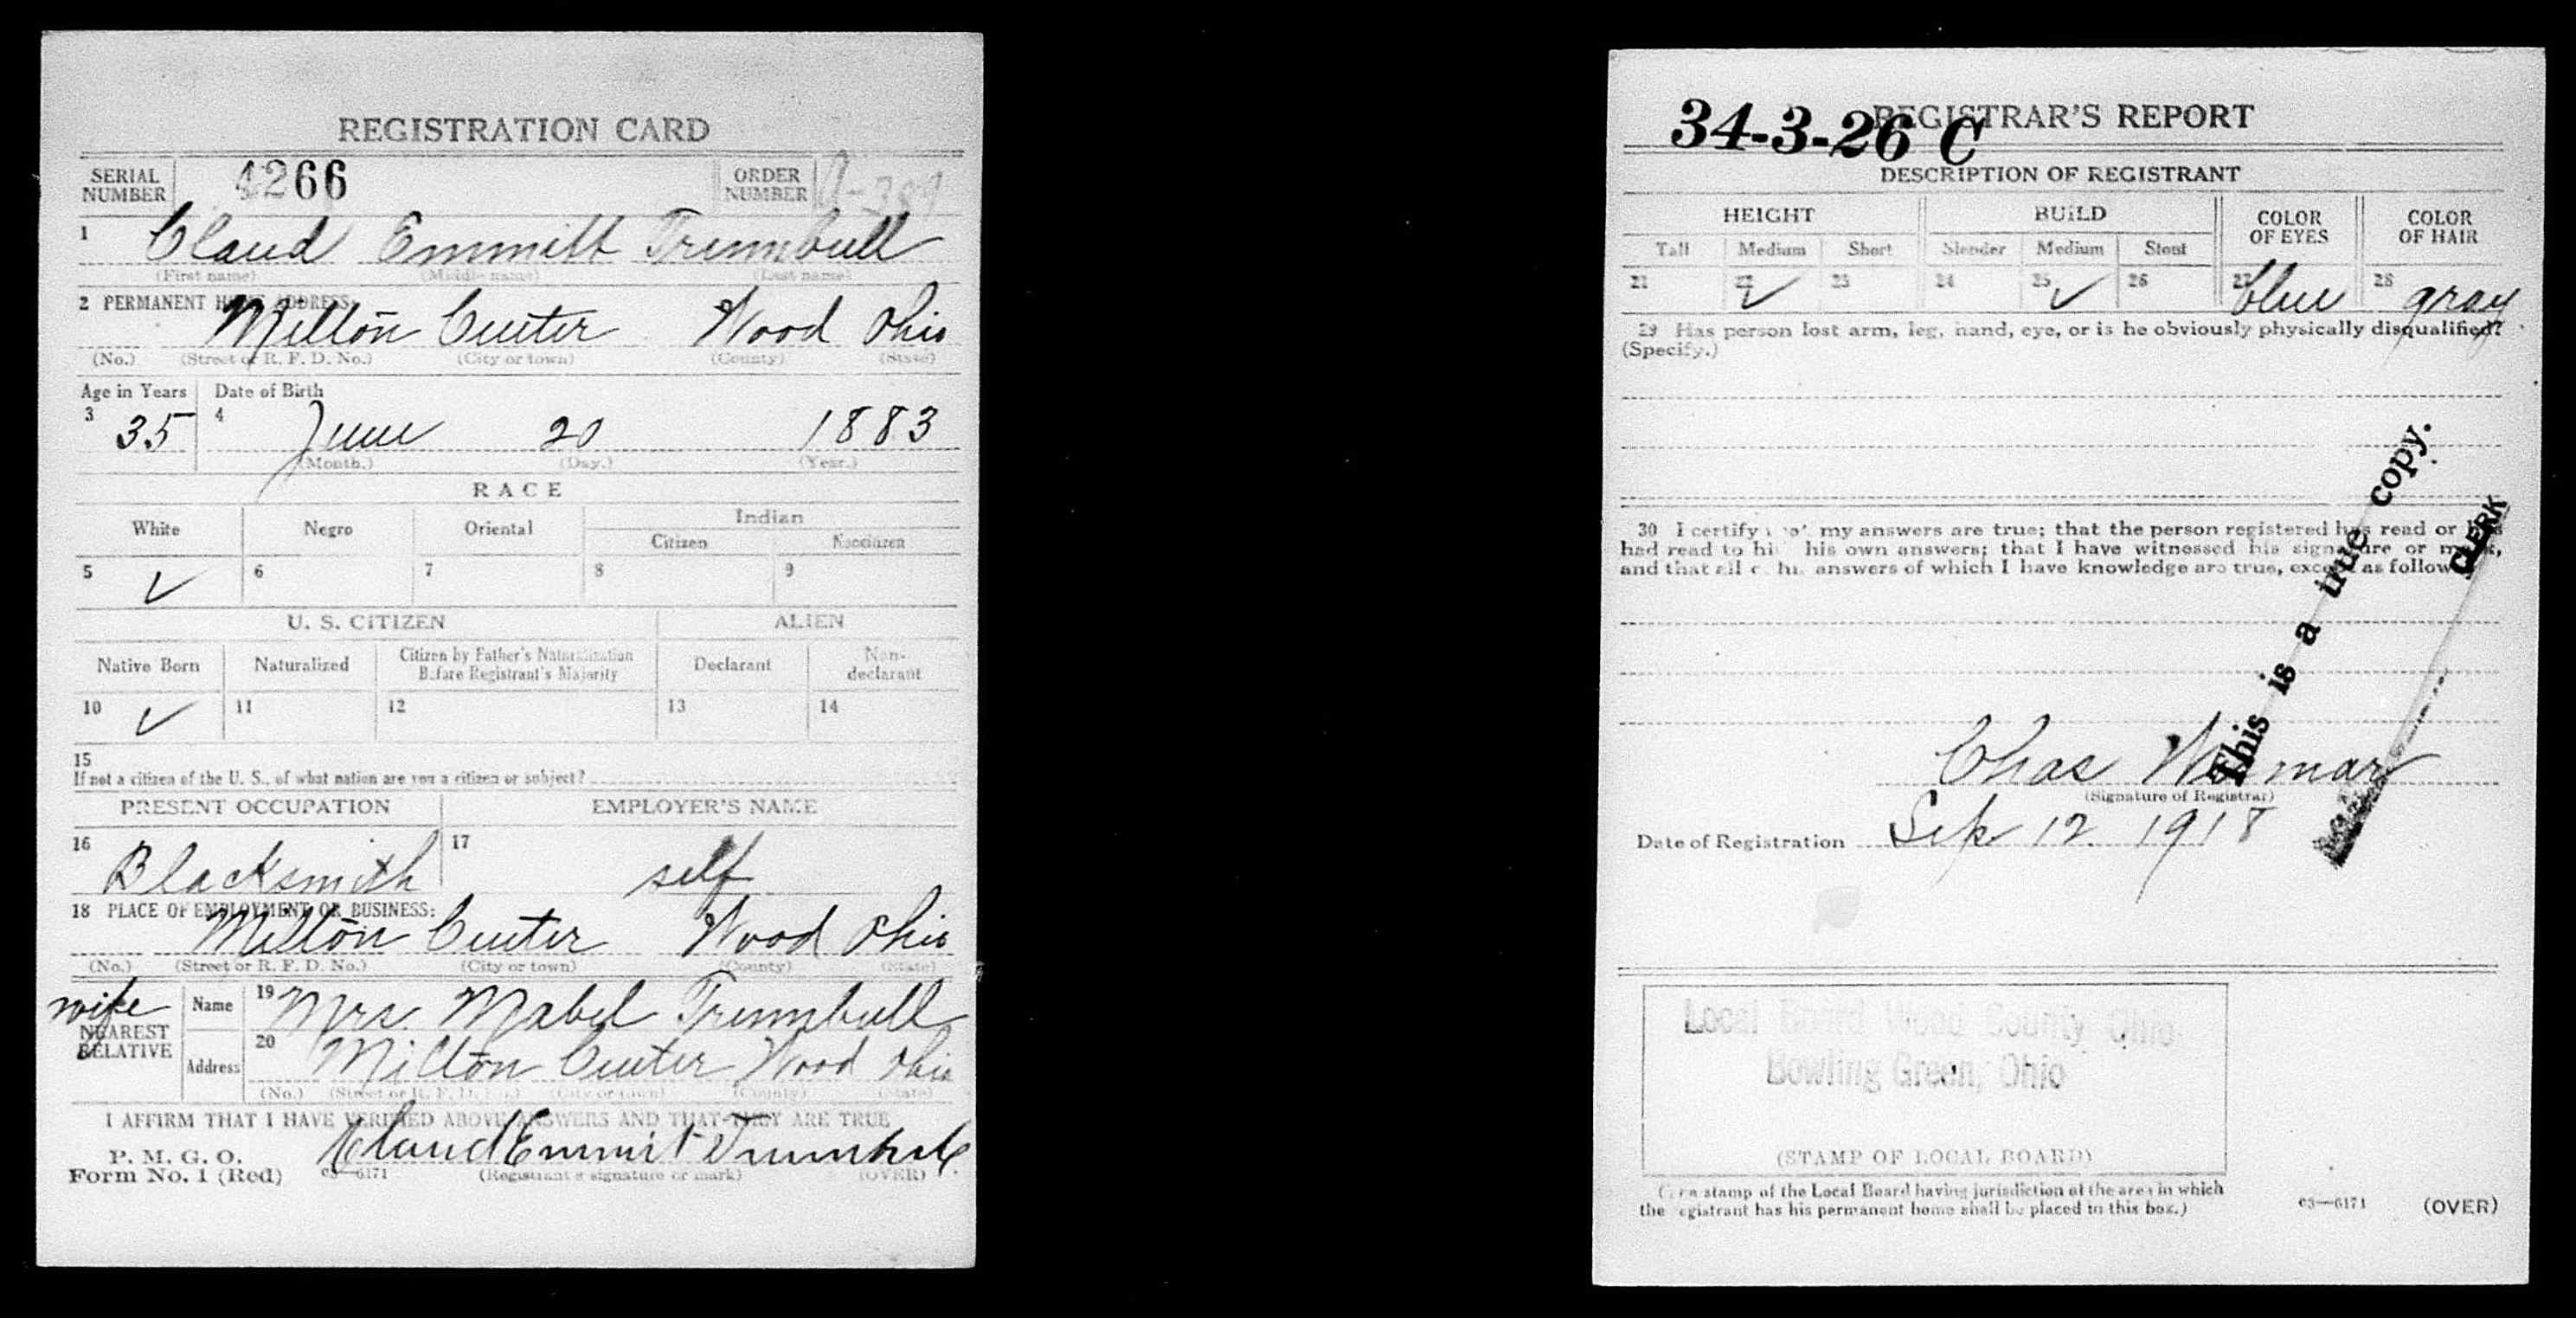 REGISTRATION CARD
SERIAL NUMBER 4266 ORDER NUMBER
1 Claud Emmitt Trumbull
(First name) (Middle name) (Last name)
2 PERMANENT HOME ADDRESS:
Milton Center Wood Ohio
(No.) (Street or R. F. D. No.) (City or town) (County) (State)
Age in Years Date of Birth
3 35 4 June 20 1883
(Month.) (Day.) (Year.)
RACE
White Negro Oriental Indian
Citizen Noncitizen
5 ✓ 6 7 8 9
U. S. CITIZEN ALIEN
Native Born Naturalized Citizen by Father's Naturalization Before Registrant's Majority Declarant Non-declarant
10 ✓ 11 12 13 14
15
If not a citizen of the U. S., of what nation are you a citizen or subject?
PRESENT OCCUPATION EMPLOYER'S NAME
16 Blacksmith 17 self
18 PLACE OF EMPLOYMENT OR BUSINESS:
Milton Center Wood Ohio
(No.) (Street or R. F. D. No.) (City or town) (County) (State)
wife
NEAREST RELATIVE
Name 19 Mrs. Mabel Trumbull
Address 20 Milton Center Wood Ohio
(No.) (Street or R. F. D. No.) (City or town) (County) (State)
I AFFIRM THAT I HAVE VERIFIED ABOVE ANSWERS AND THAT THEY ARE TRUE
P. M. G. O.
Form No. 1 (Red) c3—6171 (Registrant's signature or mark) (OVER)
Claud Emmit Trumbull
REGISTRAR'S REPORT
34-3-26 C
DESCRIPTION OF REGISTRANT
HEIGHT BUILD COLOR OF EYES COLOR OF HAIR
Tall Medium Short Slender Medium Stout
21 22 ✓ 23 24 25 ✓ 26 27 blue 28 gray
29 Has person lost arm, leg, hand, eye, or is he obviously physically disqualified?
(Specify.)
30 I certify that my answers are true; that the person registered has read or has
had read to him his own answers; that I have witnessed his signature or mark,
and that all of his answers of which I have knowledge are true, except as follows:
This is a true copy.
CLERK
Chas
(Signature of Registrar)
Date of Registration Sep 12 1918
Local Board Wood County Ohio
Bowling Green, Ohio
(STAMP OF LOCAL BOARD)
(The stamp of the Local Board having jurisdiction of the area in which
the registrant has his permanent home shall be placed in this box.)
c3—6171 (OVER)